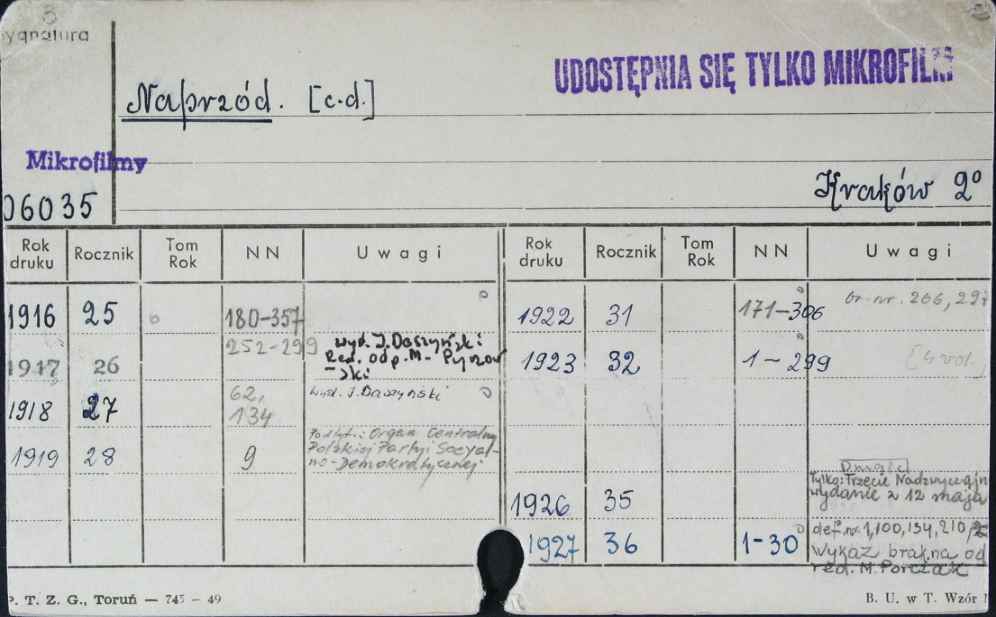 Sygnatura
Naprzód. [c.d.]
UDOSTĘPNIA SIĘ TYLKO MIKROFILM
Mikrofilmy
06035
Kraków 2°
Rok druku Rocznik Tom Rok NN Uwagi Rok druku Rocznik Tom Rok NN Uwagi
1916 25 180-357 1922 31 171-306 br nr. 206, 297
1917 26 252-299 wyd. J. Daszyński: 1923 32 1-299 [4 vol.]
Red. odp. M.
-ski
1918 27 62, wyd. J. Daszyński
134
1919 28 9 Podtyt.: Organ Centralny
Polskiej Partyi Socyal-
no-Demokratycznej
1926 35 Tylko: Trzecie Nadzwyczajn
wydanie z 12 maja
1927 36 1-30 def. nr. 1,100,134,210
Wykaz brak na od
red. M. Porczak
P. T. Z. G., Toruń — 745 - 49
B. U. w T. Wzór